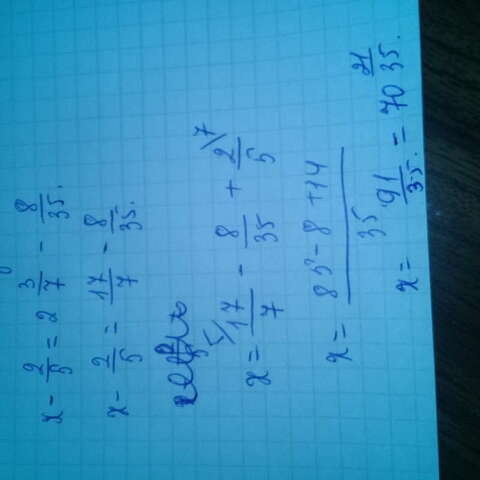 x - 2/5 = 2 3/7 - 8/35.
x - 2/5 = 17/7 - 8/35.
x = 5\ 17/7 - 8/35 + 2/5 \7
x = 85 - 8 + 14 / 35
x = 91/35. = 70 21/35.